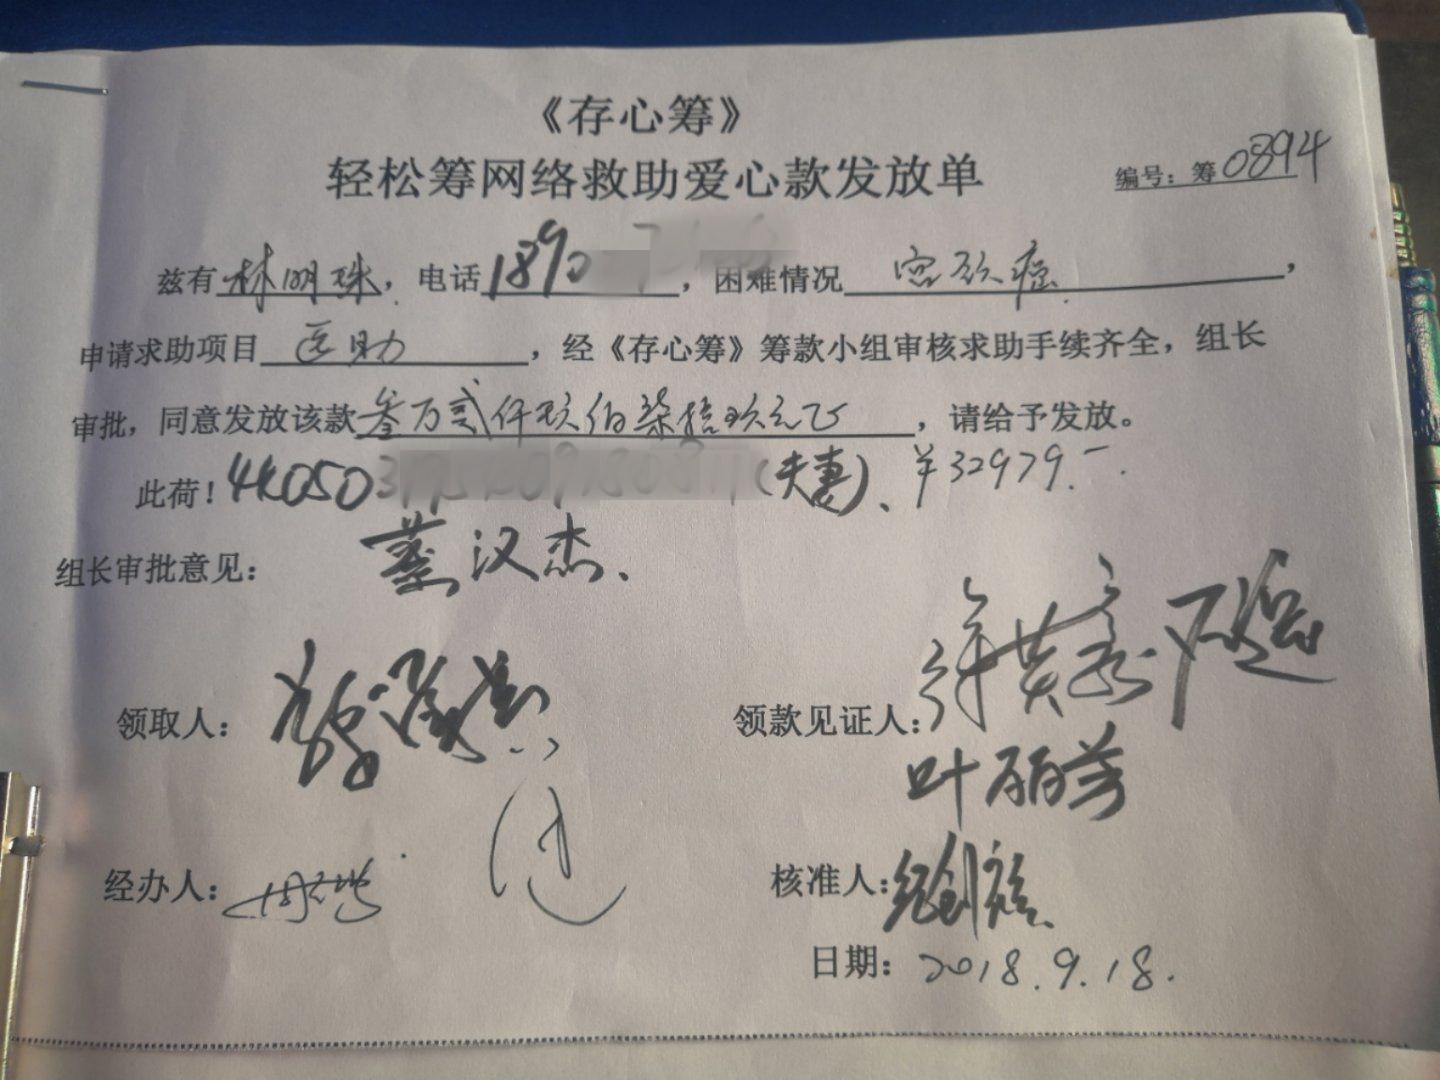 《存心筹》
轻松筹网络救助爱心款发放单
编号：筹0894
兹有林明珠，电话1890，困难情况宫颈癌，
申请求助项目医助，经《存心筹》筹款小组审核求助手续齐全，组长
审批，同意发放该款叁万贰仟玖佰柒拾玖元正，请给予发放。
此荷！44050(夫妻)、￥32979.-
组长审批意见：蔡汉杰
领取人：
领款见证人：
叶丽芳
经办人：
核准人：
日期：2018.9.18.